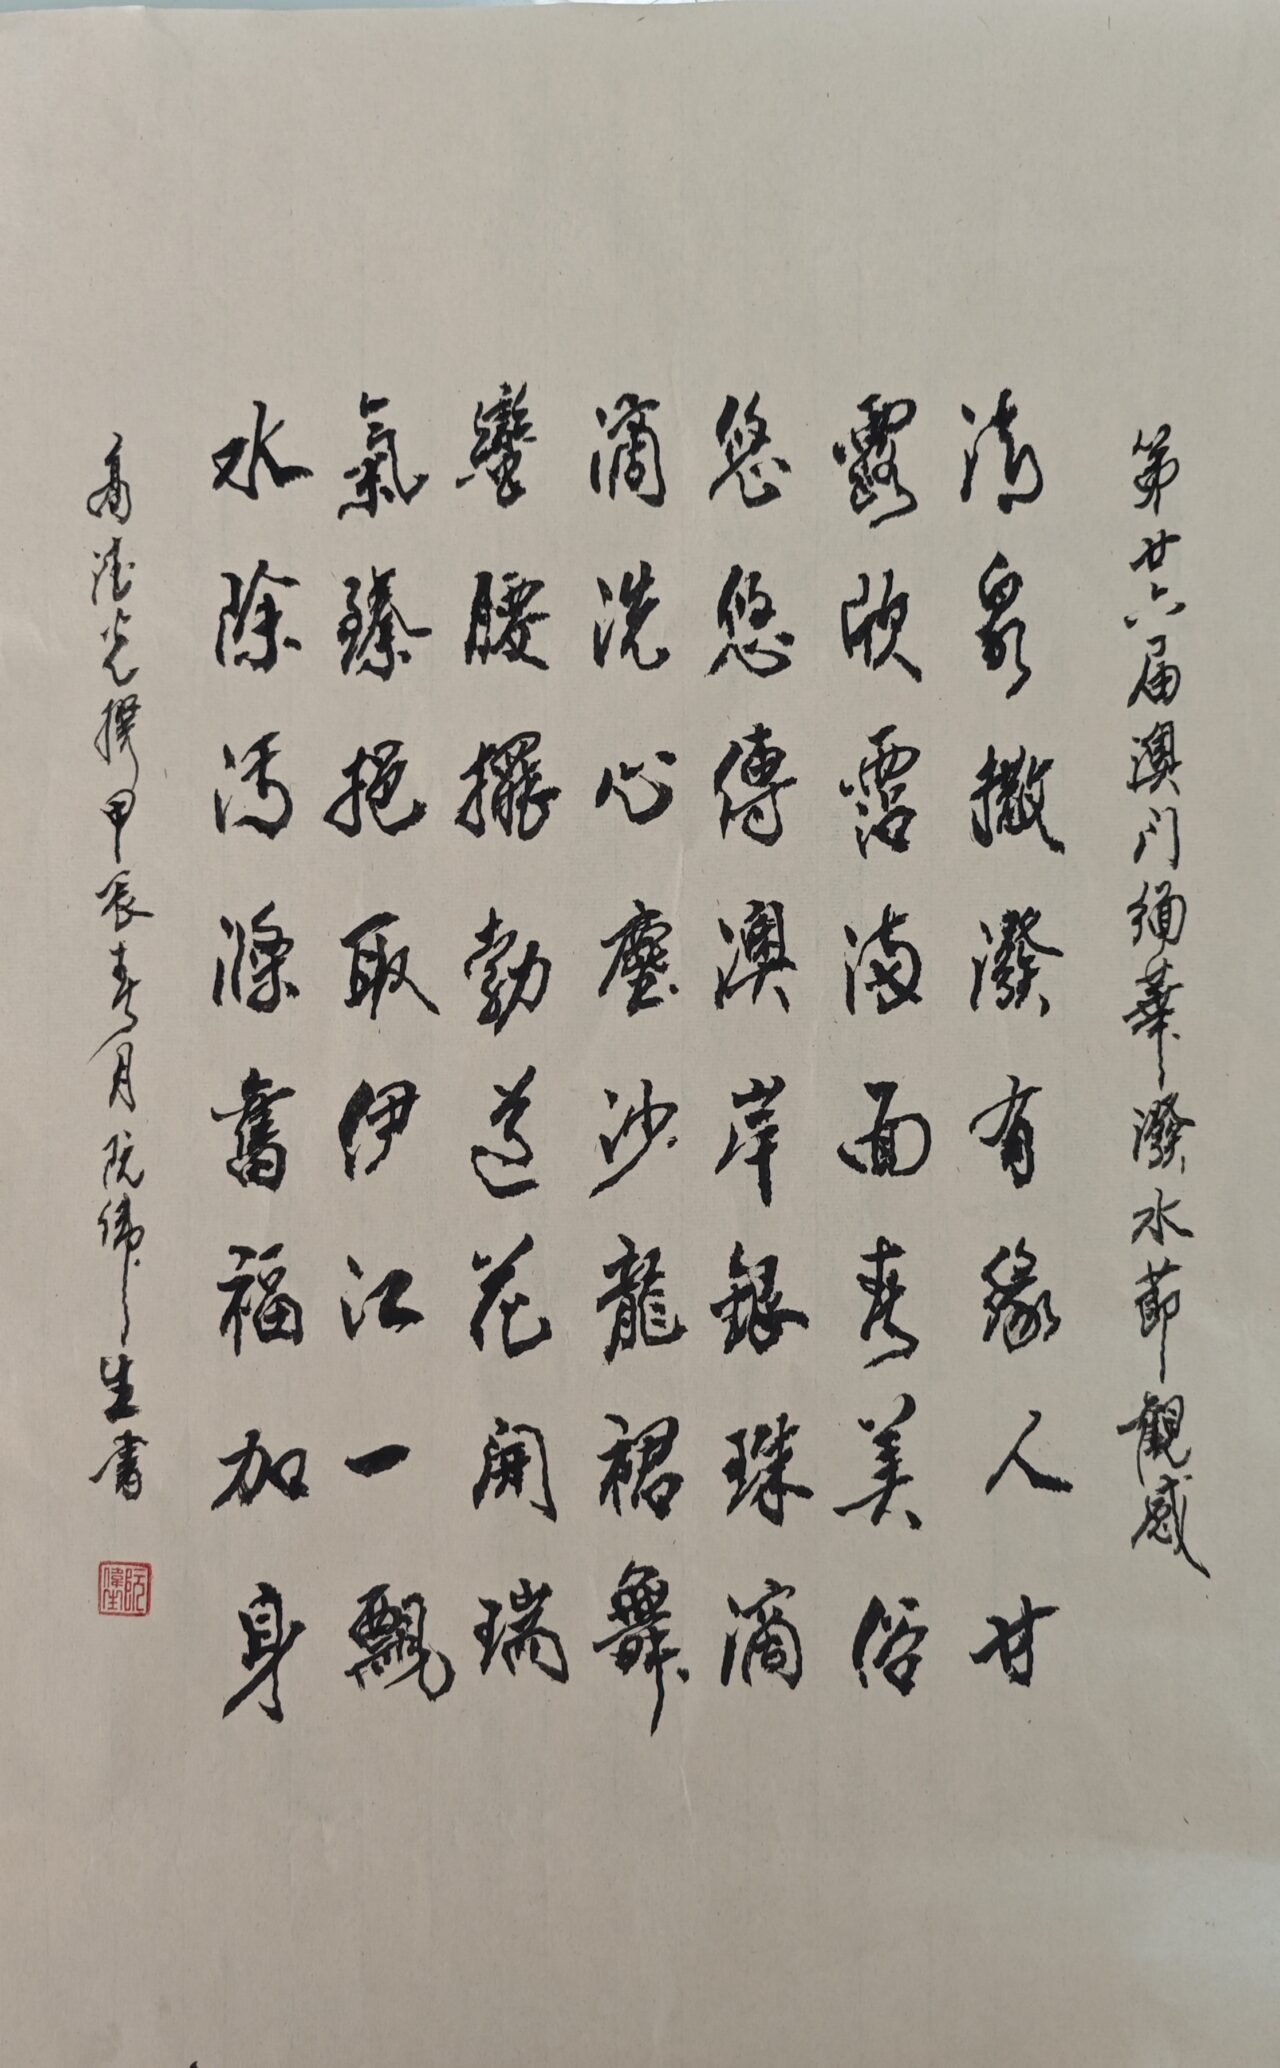 第廿六届澳门缅華潑水節觀感
清泉撒潑有緣人甘
露欣霑满面春美俗
悠悠傳澳岸銀珠滴
滴洗心塵沙龍裙舞
蠻腰擺勃蒀花開瑞
氣臻挹取伊江一瓢
水除污滌舊福加身
高德光撰甲辰春月阮偉生書
阮偉生